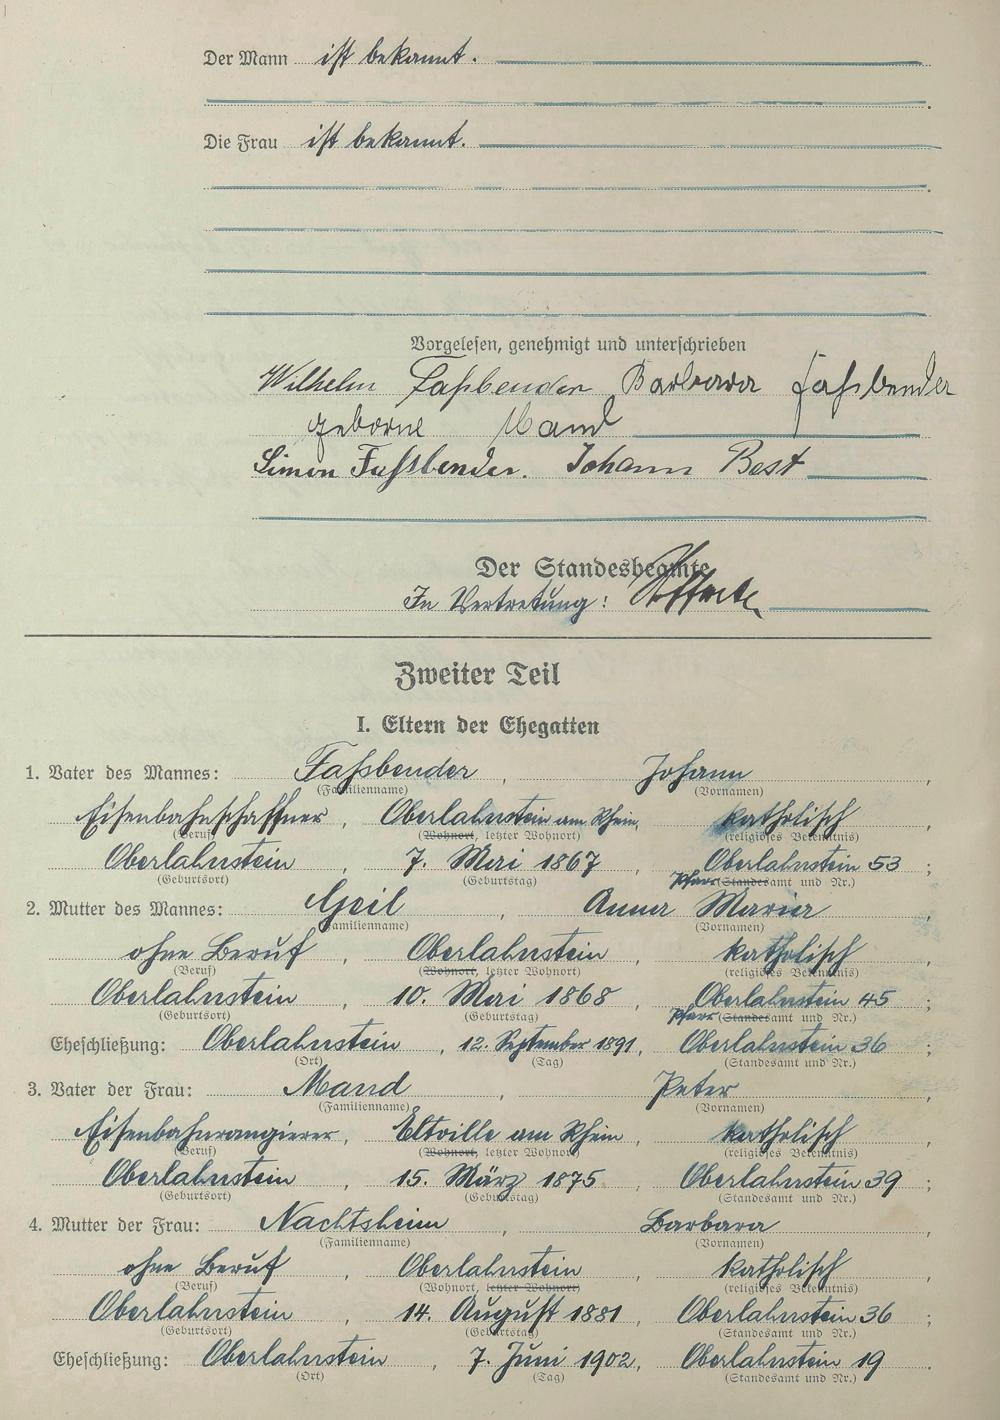 Der Mann ist bekannt.
Die Frau ist bekannt.
Vorgelesen, genehmigt und unterschrieben
Wilhelm Faßbender Barbara Faßbender
geborne Mand
Simon Fassbender. Johann Best
Der Standesbeamte
In Vertretung:
Zweiter Teil
I. Eltern der Ehegatten
1. Vater des Mannes: Faßbender, Johann,
(Familienname) (Vornamen)
Eisenbahnschaffner, Oberlahnstein am Rhein, katholisch,
(Beruf) (Wohnort, letzter Wohnort) (religiöses Bekenntnis)
Oberlahnstein, 7. Mai 1867, Oberlahnstein 53;
(Geburtsort) (Geburtstag) Pfarr (Standesamt und Nr.)
2. Mutter des Mannes: Geil, Anna Maria,
(Familienname) (Vornamen)
ohne Beruf, Oberlahnstein, katholisch,
(Beruf) (Wohnort, letzter Wohnort) (religiöses Bekenntnis)
Oberlahnstein, 10. Mai 1868, Oberlahnstein 45;
(Geburtsort) (Geburtstag) Pfarr (Standesamt und Nr.)
Eheschließung: Oberlahnstein, 12. September 1891, Oberlahnstein 36;
(Ort) (Tag) (Standesamt und Nr.)
3. Vater der Frau: Mand, Peter,
(Familienname) (Vornamen)
Eisenbahnrangierer, Eltville am Rhein, katholisch,
(Beruf) (Wohnort, letzter Wohnort) (religiöses Bekenntnis)
Oberlahnstein, 15. März 1875, Oberlahnstein 39;
(Geburtsort) (Geburtstag) (Standesamt und Nr.)
4. Mutter der Frau: Nachtsheim, Barbara,
(Familienname) (Vornamen)
ohne Beruf, Oberlahnstein, katholisch,
(Beruf) (Wohnort, letzter Wohnort) (religiöses Bekenntnis)
Oberlahnstein, 14. August 1881, Oberlahnstein 36;
(Geburtsort) (Geburtstag) (Standesamt und Nr.)
Eheschließung: Oberlahnstein, 7. Juni 1902, Oberlahnstein 19.
(Ort) (Tag) (Standesamt und Nr.)